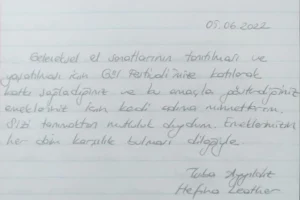 05.06.2022
Geleneksel el sanatlarının tanıtılması ve
yaşatılması için GSI Festivalimize katılarak
katkı sağladığınız ve bu amaçla gösterdiğiniz
emekleriniz için kendi adıma minnettarım.
Sizi tanımaktan mutluluk duydum. Emeklerinizin
her daim karşılık bulması dileğiyle.
Tuba Ayyıldız
Hefina Leather